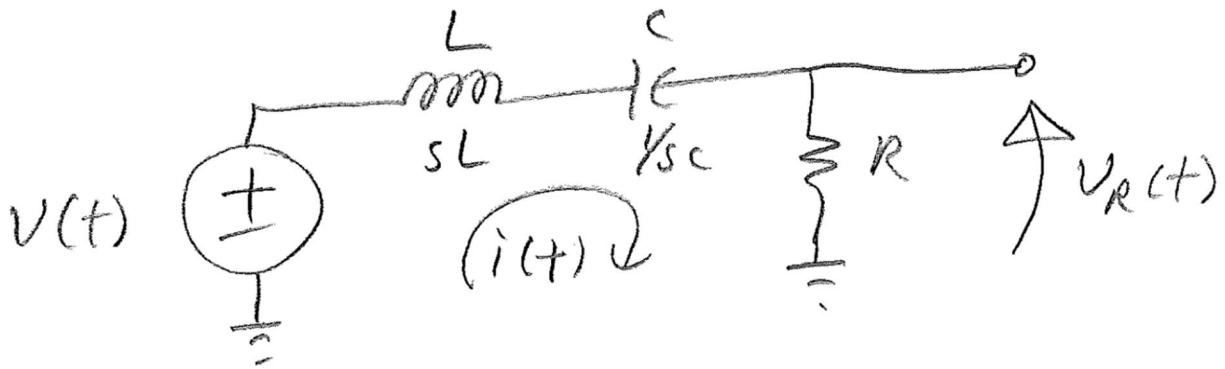 L
C
sL
1/sC
R
V(t)
+
−
i(t)
v_R(t)